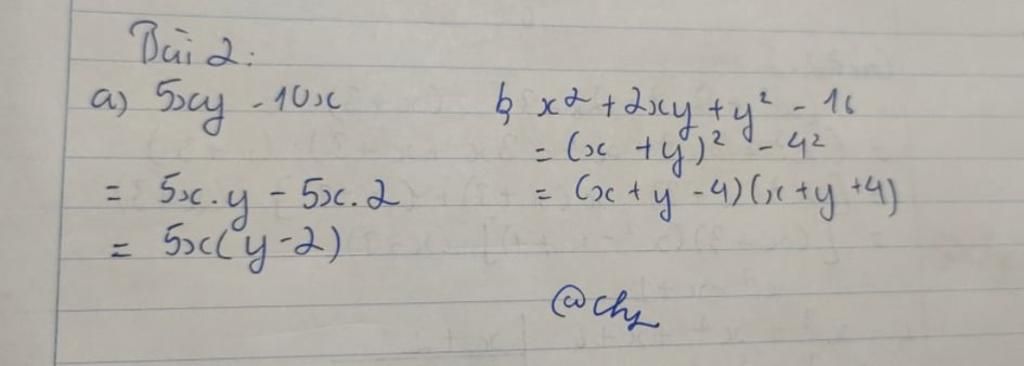 Bài 2:
a) 5xy - 10x
= 5x.y - 5x.2
= 5x(y-2)
b, x² + 2xy + y² - 16
= (x + y)² - 4²
= (x + y - 4)(x + y + 4)